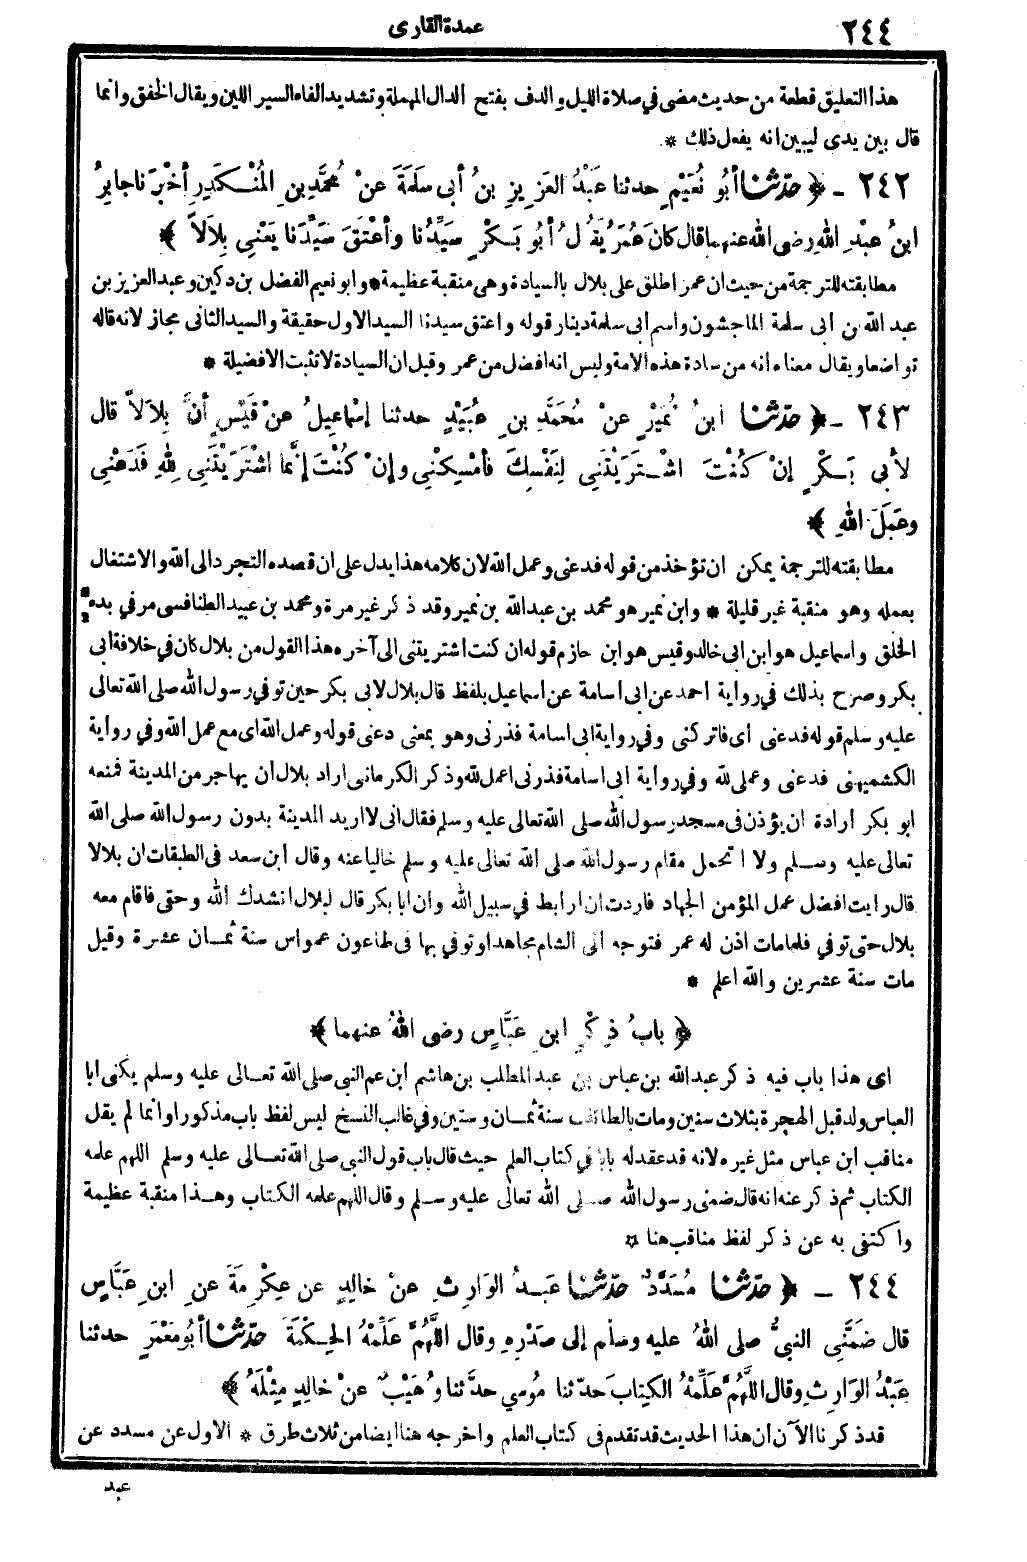 ٢٤٤
عمدة القارى
هذا التعليق قطعة من حديث مضى في صلاة الليل والدف بفتح الدال المهملة وتشديد الفاء السير اللين ويقال الخفق وانما
قال بين يدى ليبين انه يفعل ذلك *
٢٤٢ - ﴿ حدّثنا أبُو نُعَيْمٍ حدثنا عَبْدُ العَزِيزِ بنُ أبى سلَمَةَ عنْ مُحَمَّدِ بنِ المُنْكَدِرِ أخْبرَنا جابِرُ
ابنُ عبْدِ اللهِ رضى الله عنهما قال كانَ عُمَرُ يَقُولُ أبُو بَكْرٍ سَيِّدُنا وأعْتَقَ سَيِّدَنا يَعْنِى بِلاَلاً ﴾
مطابقته للترجمة من حيث ان عمر اطلق على بلال بالسيادة وهى منقبة عظيمة * وابو نعيم الفضل بن دكين وعبد العزيز بن
عبد الله بن ابى سلمة الماجشون واسم ابى سلمة دينار قوله واعتق سيدنا السيد الاول حقيقة والسيد الثانى مجاز لانه قاله
تواضعا ويقال معناه انه من سادة هذه الامة وليس انه افضل من عمر وقيل ان السيادة لا تثبت الافضيلة *
٢٤٣ - ﴿ حدّثنا ابنُ نُمَيْرٍ عنْ مُحَمَّدِ بنِ عُبَيْدٍ حدثنا إسْماعِيلُ عنْ قَيْسٍ أنَّ بِلاَلاً قال
لأبى بَكْرٍ إنْ كُنْتَ اشْتَرَيْتَنِى لِنَفْسِكَ فأمْسِكْنِى وإنْ كُنْتَ إنَّما اشْتَرَيْتَنِى لِلهِ فَدَعْنِى
وعَمَلَ اللهِ ﴾
مطابقته للترجمة يمكن ان تؤخذ من قوله فدعنى وعمل الله لان كلامه هذا يدل على ان قصده التجرد الى الله والاشتغال
بعمله وهو منقبة غير قليلة * وابن نمير هو محمد بن عبد الله بن نمير وقد ذكر غير مرة ومحمد بن عبيد الطنافسى مر في بدء
الخلق واسماعيل هو ابن ابى خالد وقيس هو ابن حازم قوله ان كنت اشتريتنى الى آخره هذا القول من بلال كان في خلافة أبى
بكر وصرح بذلك في رواية احمد عن ابى اسامة عن اسماعيل بلفظ قال بلال لابى بكر حين توفي رسول الله صلى الله تعالى
عليه وسلم قوله فدعنى أى فاتركنى وفي رواية ابى اسامة فذرنى وهو بمعنى دعنى قوله وعمل الله اى مع عمل الله وفي رواية
الكشميهنى فدعنى وعملى لله وفي رواية ابى اسامة فذرنى اعمل لله وذكر الكرمانى اراد بلال أن يهاجر من المدينة فمنعه
ابو بكر ارادة ان يؤذن فى مسجد رسول الله صلى الله تعالى عليه وسلم فقال انى لا اريد المدينة بدون رسول الله صلى الله
تعالى عليه وسلم ولا اتحمل مقام رسول الله صلى الله تعالى عليه وسلم خاليا عنه وقال ابن سعد فى الطبقات ان بلالا
قال رايت افضل عمل المؤمن الجهاد فاردت ان ارابط في سبيل الله وان ابا بكر قال لبلال انشدك الله وحتى فاقام معه
بلال حتى توفي فلما مات اذن له عمر فتوجه الى الشام مجاهدا وتوفي بها فى طاعون عمواس سنة ثمان عشرة وقيل
مات سنة عشرين والله اعلم *
﴿ بابُ ذِكْرِ ابنِ عَبَّاسٍ رضى اللهُ عنهما ﴾
اى هذا باب فيه ذكر عبد الله بن عباس بن عبد المطلب بن هاشم ابن عم النبى صلى الله تعالى عليه وسلم يكنى ابا
العباس ولد قبل الهجرة بثلاث سنين ومات بالطائف سنة ثمان وستين وفي غالب النسخ ليس لفظ باب مذكورا وانما لم يقل
مناقب ابن عباس مثل غيره لانه قد عقد له بابا في كتاب العلم حيث قال باب قول النبى صلى الله تعالى عليه وسلم اللهم علمه
الكتاب ثم ذكر عنه انه قال ضمنى رسول الله صلى الله تعالى عليه وسلم وقال اللهم علمه الكتاب وهذا منقبة عظيمة
واكتفى به عن ذكر لفظ مناقب هنا *
٢٤٤ - ﴿ حدّثنا مُسَدَّدٌ حدّثنا عَبدُ الوَارِثِ عنْ خالِدٍ عن عِكْرِمَةَ عنِ ابنِ عَبَّاسٍ
قال ضَمَّنِى النبىُّ صلى اللهُ عليه وسلّم إلى صَدْرِهِ وقال اللَّهُمَّ عَلِّمْهُ الحِكْمَةَ حدّثنا أبُو مَعْمَرٍ حدثنا
عَبْدُ الوَارِثِ وقال اللَّهُمَّ عَلِّمْهُ الكِتابَ حَدّثنا مُوسي حدَّثنا وُهَيْبٌ عنْ خالِدٍ مِثْلَهُ ﴾
قد ذكرنا الآن أن هذا الحديث قد تقدم فى كتاب العلم واخرجه هنا ايضا من ثلاث طرق * الاول عن مسدد عن
عبد